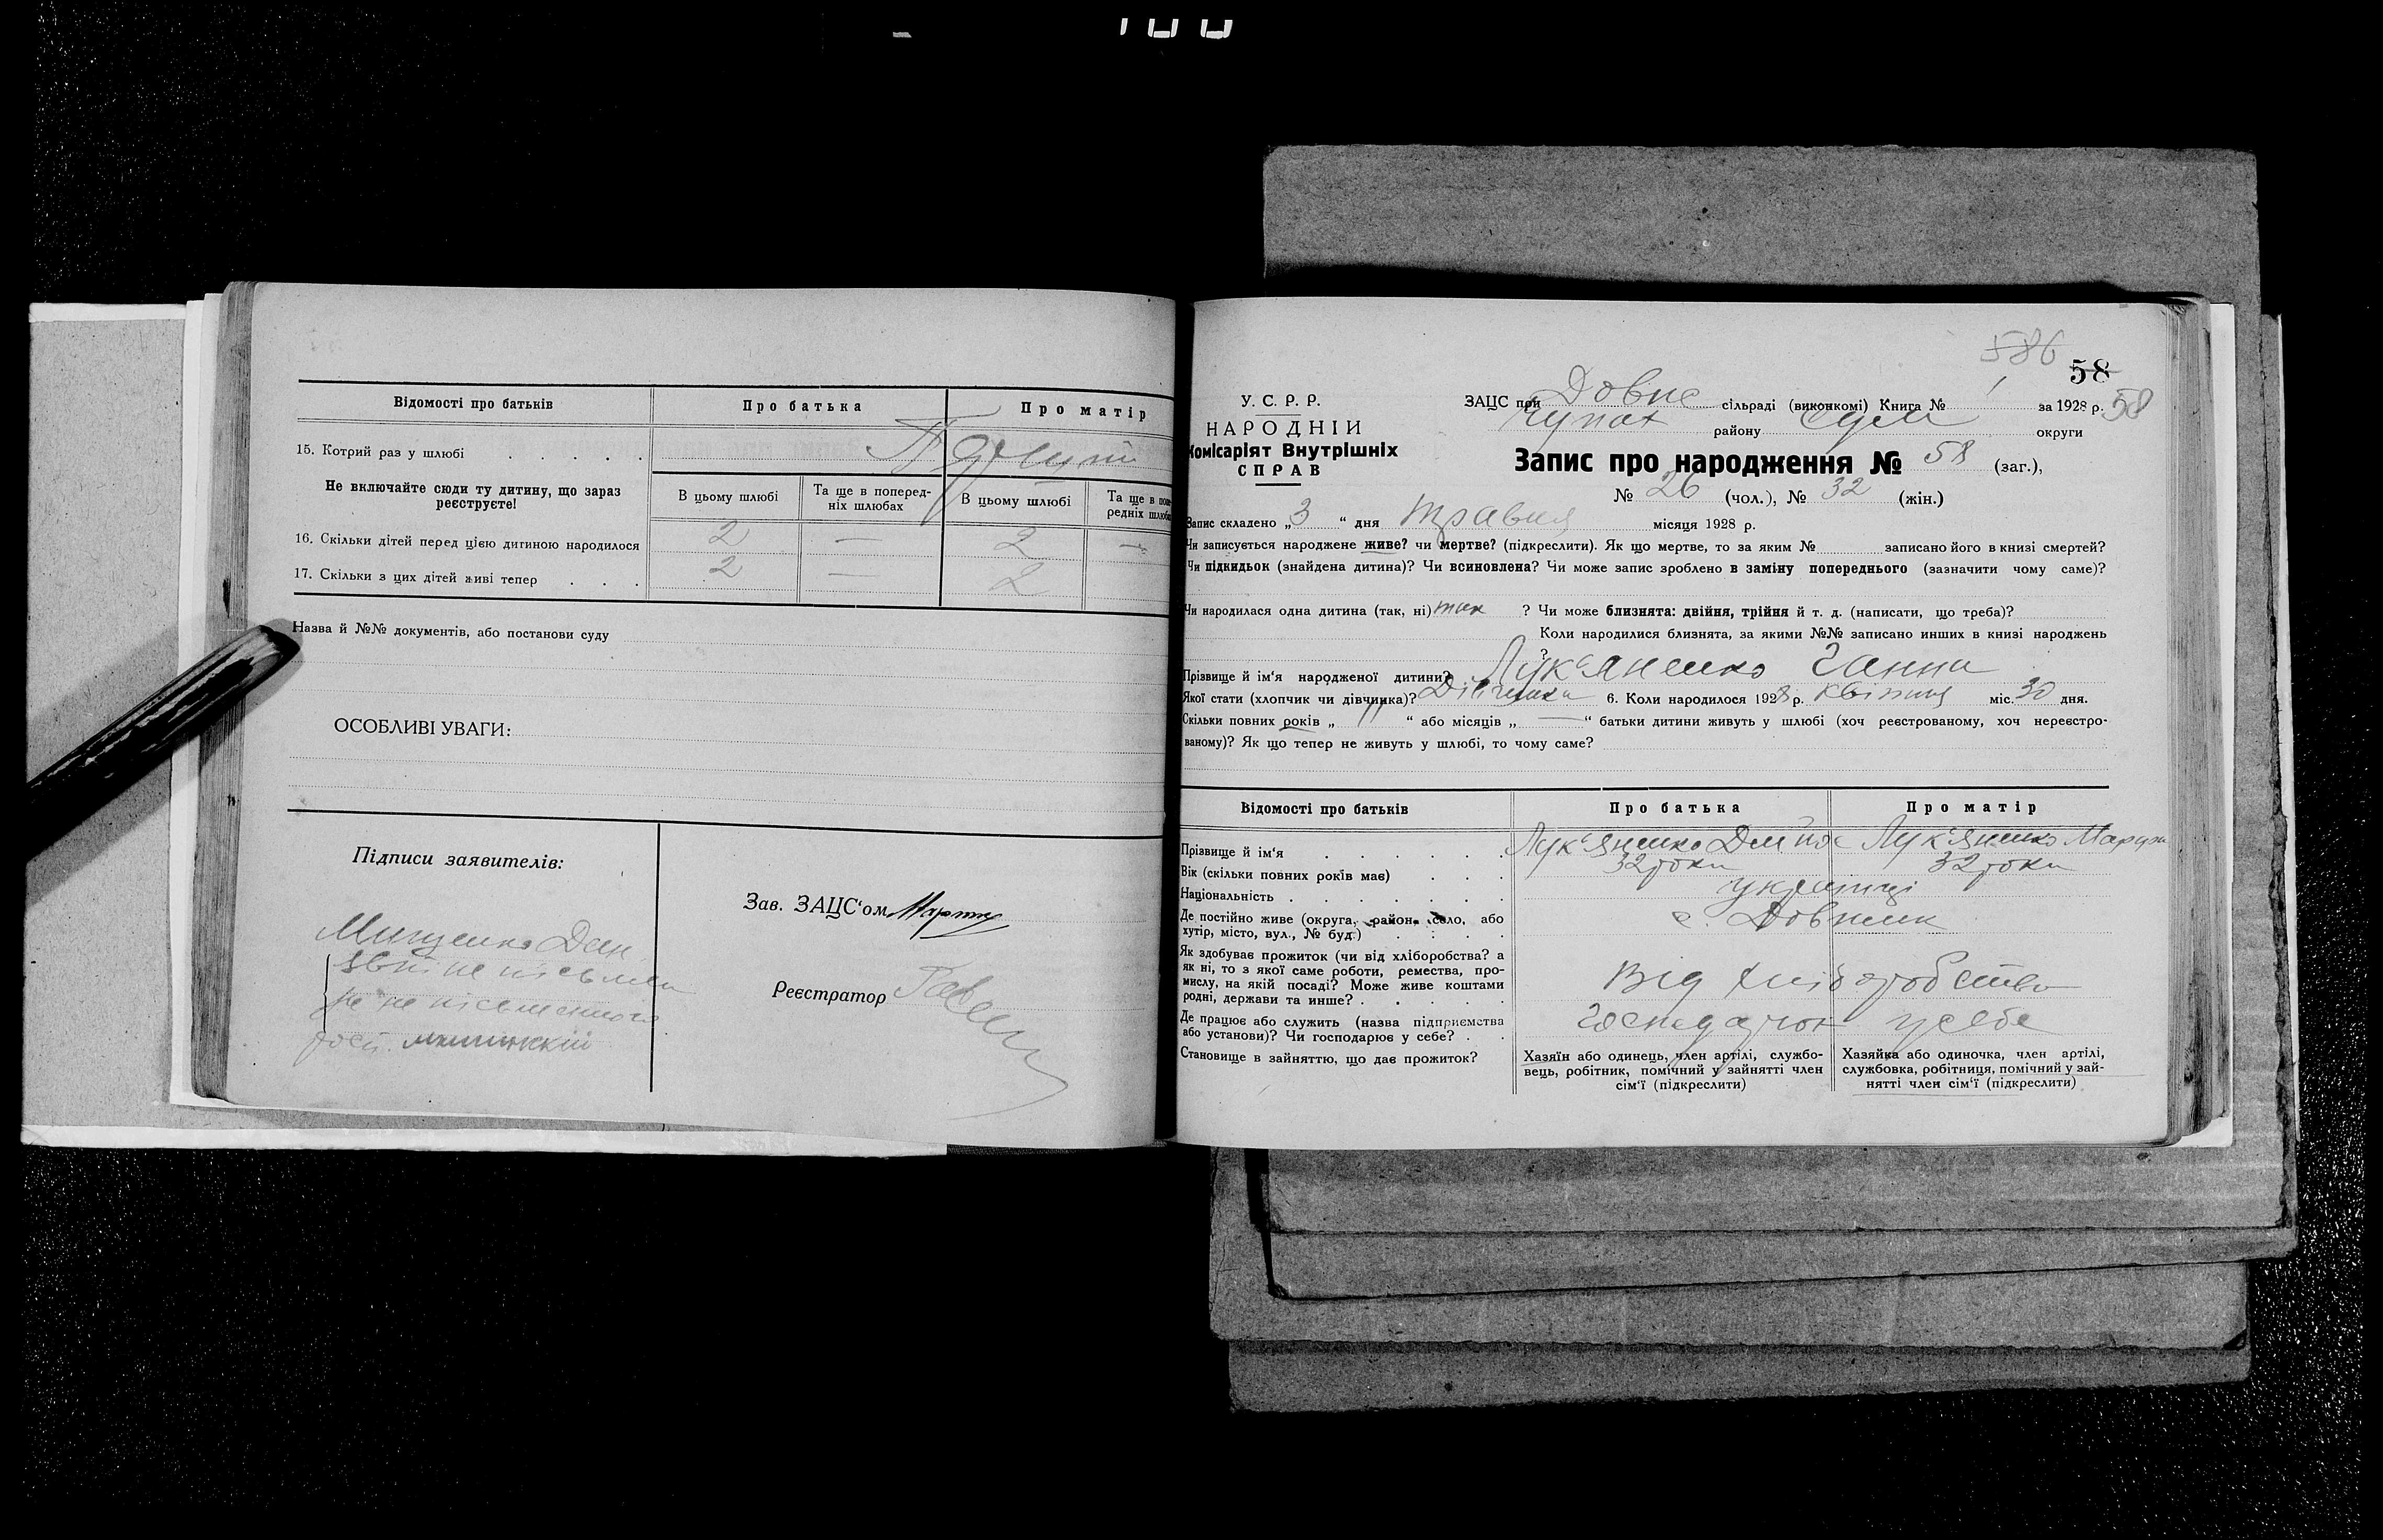 Відомості про батьків
Про батька
Про матір
15. Котрий раз у шлюбі . . . . .
Не включайте сюди ту дитину, що зараз реєструєте!
В цьому шлюбі
Та ще в поперед-
ніх шлюбах
В цьому шлюбі
Та ще в попе-
редніх шлюбах
16. Скільки дітей перед цією дитиною народилося 2 — 2 —
17. Скільки з цих дітей живі тепер . . . 2 — 2
Назва й №№ документів, або постанови суду
ОСОБЛИВІ УВАГИ:
Підписи заявителів:
Мищенко Дан.
Зав. ЗАЦС'ом
Реєстратор
586
58
58
У. С. Р. Р.
НАРОДНІЙ
Комісаріят Внутрішніх
СПРАВ
ЗАЦС при Довже сільраді (виконкомі) Книга № 1 за 1928 р.
Чупах району Сум округи
Запис про народження № 58 (заг.),
№ 26 (чол.), № 32 (жін.)
Запис складено „3“ дня Травня місяця 1928 р.
Чи записується народжене живе? чи мертве? (підкреслити). Як що мертве, то за яким № записано його в книзі смертей?
Чи підкидьок (знайдена дитина)? Чи всиновлена? Чи може запис зроблено в заміну попереднього (зазначити чому саме)?
Чи народилася одна дитина (так, ні) так ? Чи може близнята: двійня, трійня й т. д. (написати, що треба)?
Коли народилися близнята, за якими №№ записано инших в книзі народжень
?
Прізвище й ім'я народженої дитини? Лук'яненко Ганна
Якої стати (хлопчик чи дівчинка)? Дівчинка 6. Коли народилося 1928 р. квітня міс. 30 дня.
Скільки повних років „ 11 “ або місяців „ — “ батьки дитини живуть у шлюбі (хоч реєстрованому, хоч нереєстро-
ваному)? Як що тепер не живуть у шлюбі, то чому саме?
Відомості про батьків
Про батька
Про матір
Прізвище й ім'я . . . . . . Лук'яненко Лук'яненко
Вік (скільки повних років має) . . . 32 роки 32 роки
Національність . . . . . . . українці
Де постійно живе (округа, район, село, або
хутір, місто, вул., № буд.) . . . . с. Довжик
Як здобуває прожиток (чи від хліборобства? а
як ні, то з якої саме роботи, ремества, про-
мислу, на якій посаді? Може живе коштами
родні, держави та инше? . . . . . Від хліборобства
Де працює або служить (назва підприємства
або установи)? Чи господарює у себе? . . у себе
Становище в зайняттю, що дає прожиток?
Хазяїн або одинець, член артілі, службо-
вець, робітник, помічний у зайнятті член
сім'ї (підкреслити)
Хазяйка або одиночка, член артілі,
службовка, робітниця, помічний у зай-
нятті член сім'ї (підкреслити)